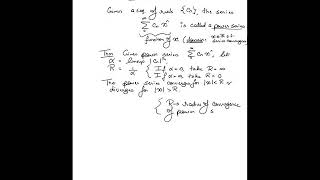 Given a seq. of reals {Cn}, the series
∑ Cn xⁿ is called a power series
function of x (domain: x∈ℝ s.t. series converges
Thm Given power series ∑ Cn xⁿ, let
α = limsup |Cn|^1/n
R = 1/α { If α=0, take R=∞
If α=∞, take R=0
The power series converges for |x|<R &
diverges for |x|>R.
{ R → radius of convergence
of power s